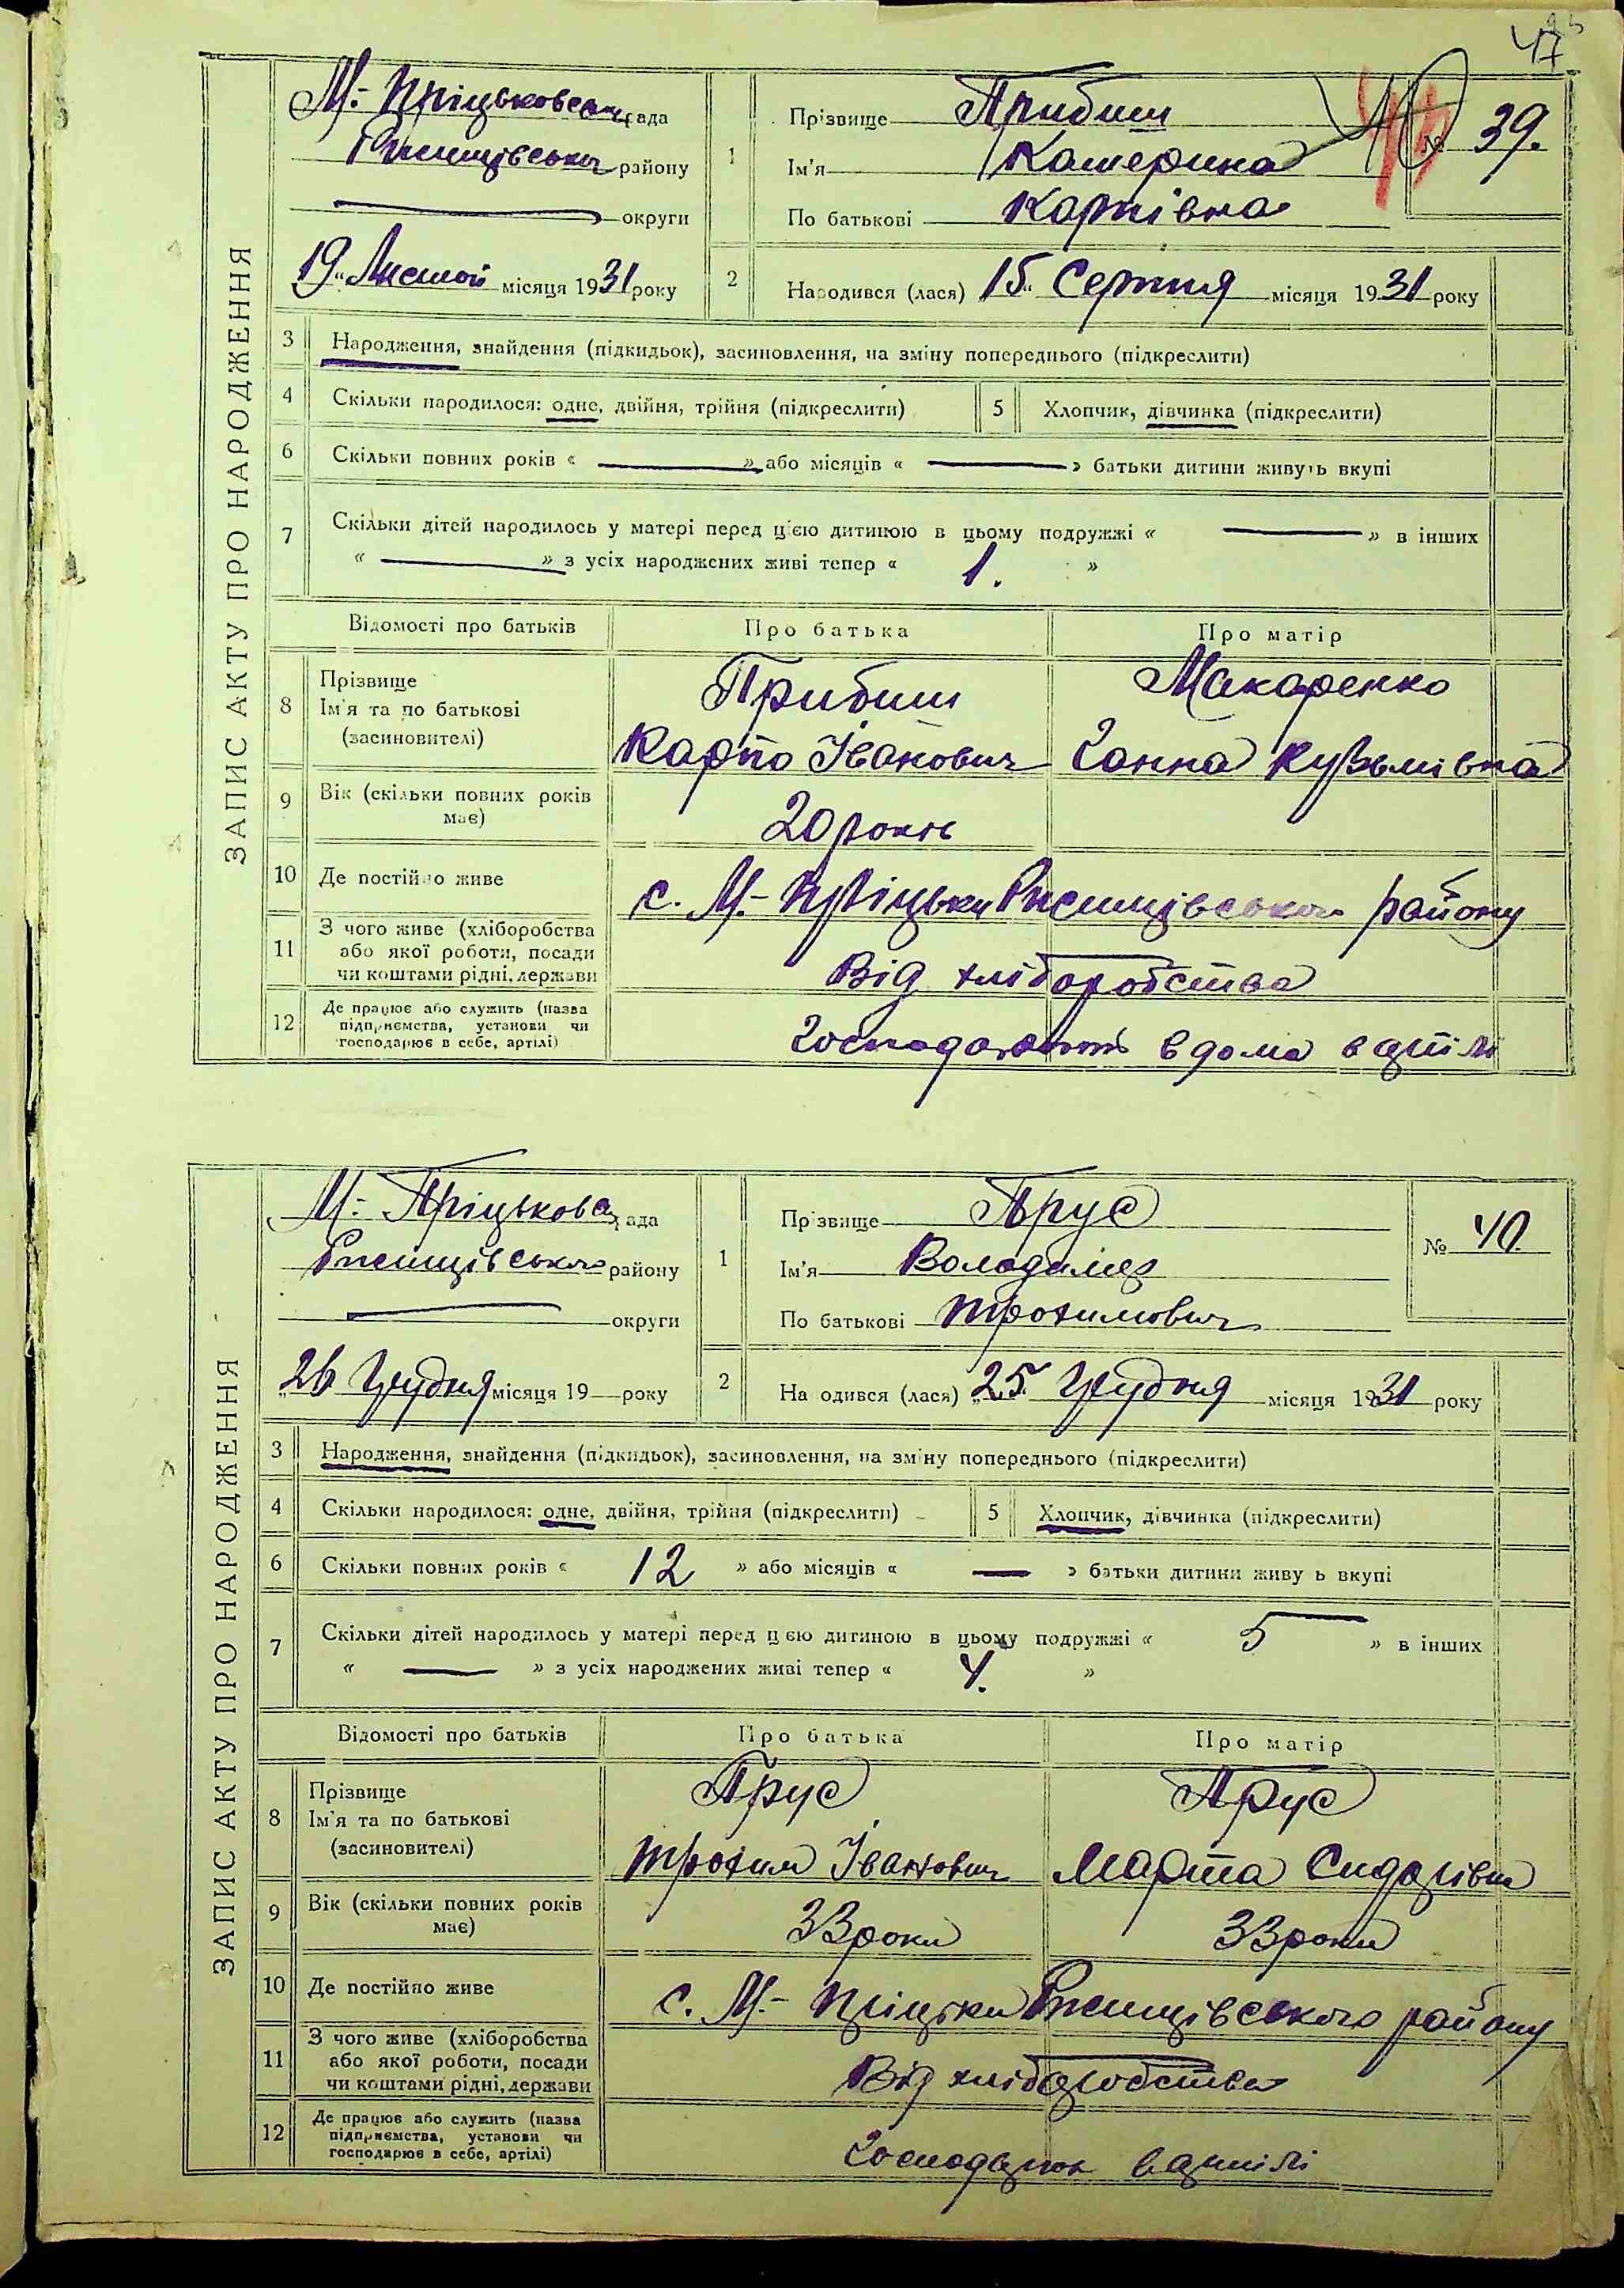 47
ЗАПИС АКТУ ПРО НАРОДЖЕННЯ
М.- Пріцьковська рада
Ржищівського району
округи
19 " Листоп місяця 1931 року
1
Прізвище Прибиш
Ім'я Катерина
По батькові Карпівна
№ 39.
2
Народився (лася) 15 " Серпня місяця 1931 року
3 Народження, знайдення (підкидьок), засиновлення, на зміну попереднього (підкреслити)
4 Скільки народилося: одне, двійня, трійня (підкреслити)
5 Хлопчик, дівчинка (підкреслити)
6 Скільки повних років « — » або місяців « — » батьки дитини живуть вкупі
7 Скільки дітей народилось у матері перед цією дитиною в цьому подружжі « — » в інших
« — » з усіх народжених живі тепер « 1. »
Відомості про батьків Про батька Про матір
8 Прізвище
Ім'я та по батькові
(засиновителі)
Прибиш
Карпо Іванович
Макаренко
Ганна Кузьмівна
9 Вік (скільки повних років
має)
20 років
10 Де постійно живе
с. М.- Пріцьки Ржищівського району
11 З чого живе (хліборобства
або якої роботи, посади
чи коштами рідні, держави
Від хліборобства
12 Де працює або служить (назва
підприємства, установи чи
господарює в себе, артілі)
вдома в артілі
ЗАПИС АКТУ ПРО НАРОДЖЕННЯ
М.- Пріцьковс рада
Ржищівського району
округи
26 Грудня місяця 19 — року
1
Прізвище Прус
Ім'я Володимер
По батькові Трохимович
№ 40.
2
Народився (лася) 25 Грудня місяця 1931 року
3 Народження, знайдення (підкидьок), засиновлення, на зміну попереднього (підкреслити)
4 Скільки народилося: одне, двійня, трійня (підкреслити)
5 Хлопчик, дівчинка (підкреслити)
6 Скільки повних років « 12 » або місяців « — » батьки дитини живуть вкупі
7 Скільки дітей народилось у матері перед цією дитиною в цьому подружжі « 5 » в інших
« — » з усіх народжених живі тепер « 4. »
Відомості про батьків Про батька Про матір
8 Прізвище
Ім'я та по батькові
(засиновителі)
Прус
Трохим Іванович
Прус
Марта Сидорівна
9 Вік (скільки повних років
має)
33 роки
33 роки
10 Де постійно живе
с. М.- Пріцьки Ржищівського району
11 З чого живе (хліборобства
або якої роботи, посади
чи коштами рідні, держави
Від хліборобства
12 Де працює або служить (назва
підприємства, установи чи
господарює в себе, артілі)
в артілі